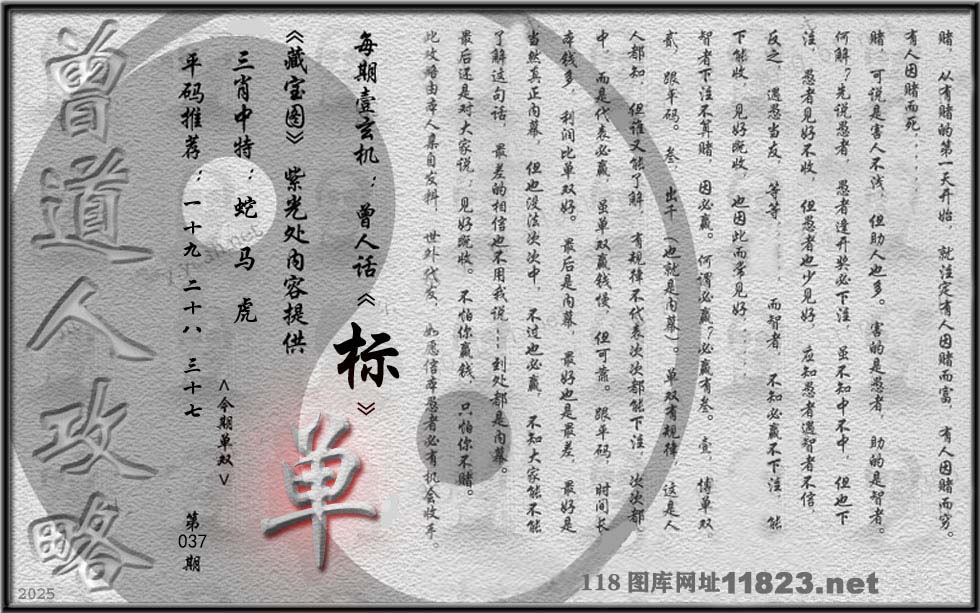 赌，从有赌的第一天开始，就注定有人因赌而富，有人因赌而穷。
有人因赌而死.......
赌，可说是害人不浅，但助人也多。害的是愚者，助的是智者。
何解？先说愚者，愚者逢开奖必下注，虽不知中不中，但也下
注，愚者见好不收，但愚者也少见好，应知愚者遇智者不信，
反之，遇恶当友，等等.......而智者，不知必赢不下注，能
下能收，见好既收，也因此而常见好......
智者下注不算赌，因必赢。何谓必赢？必赢有叁。壹，博单双，
贰，跟平码。叁，出千（也就是内幕）。单双有规律，这是人
人都知，但谁又能了解，有规律不代表次次都能下注，次次都
中，而是代表必赢，虽单双赢钱慢，但可靠。跟平码，时间长
本钱多，利润比单双好。最后是内幕，最好也是最差，最好是
当然真正内幕，但也没法次次中，不过也必赢，不知大家能不能
了解这句话，最差的相信也不用我说……到处都是内幕。
最后还是对大家说：见好既收。不怕你赢钱，只怕你不赌。
此攻略由本人集自发料，世外代发，如愿信本愚者必有机会收手。
每期壹玄机：曾人话《标》
《藏宝图》紫光处内容提供
三肖中特：蛇 马 虎
平码推荐：一十九 二十八 三十七
<今期单双>
单
第037期
曾道人攻略
2025
118 图库网址11823.net